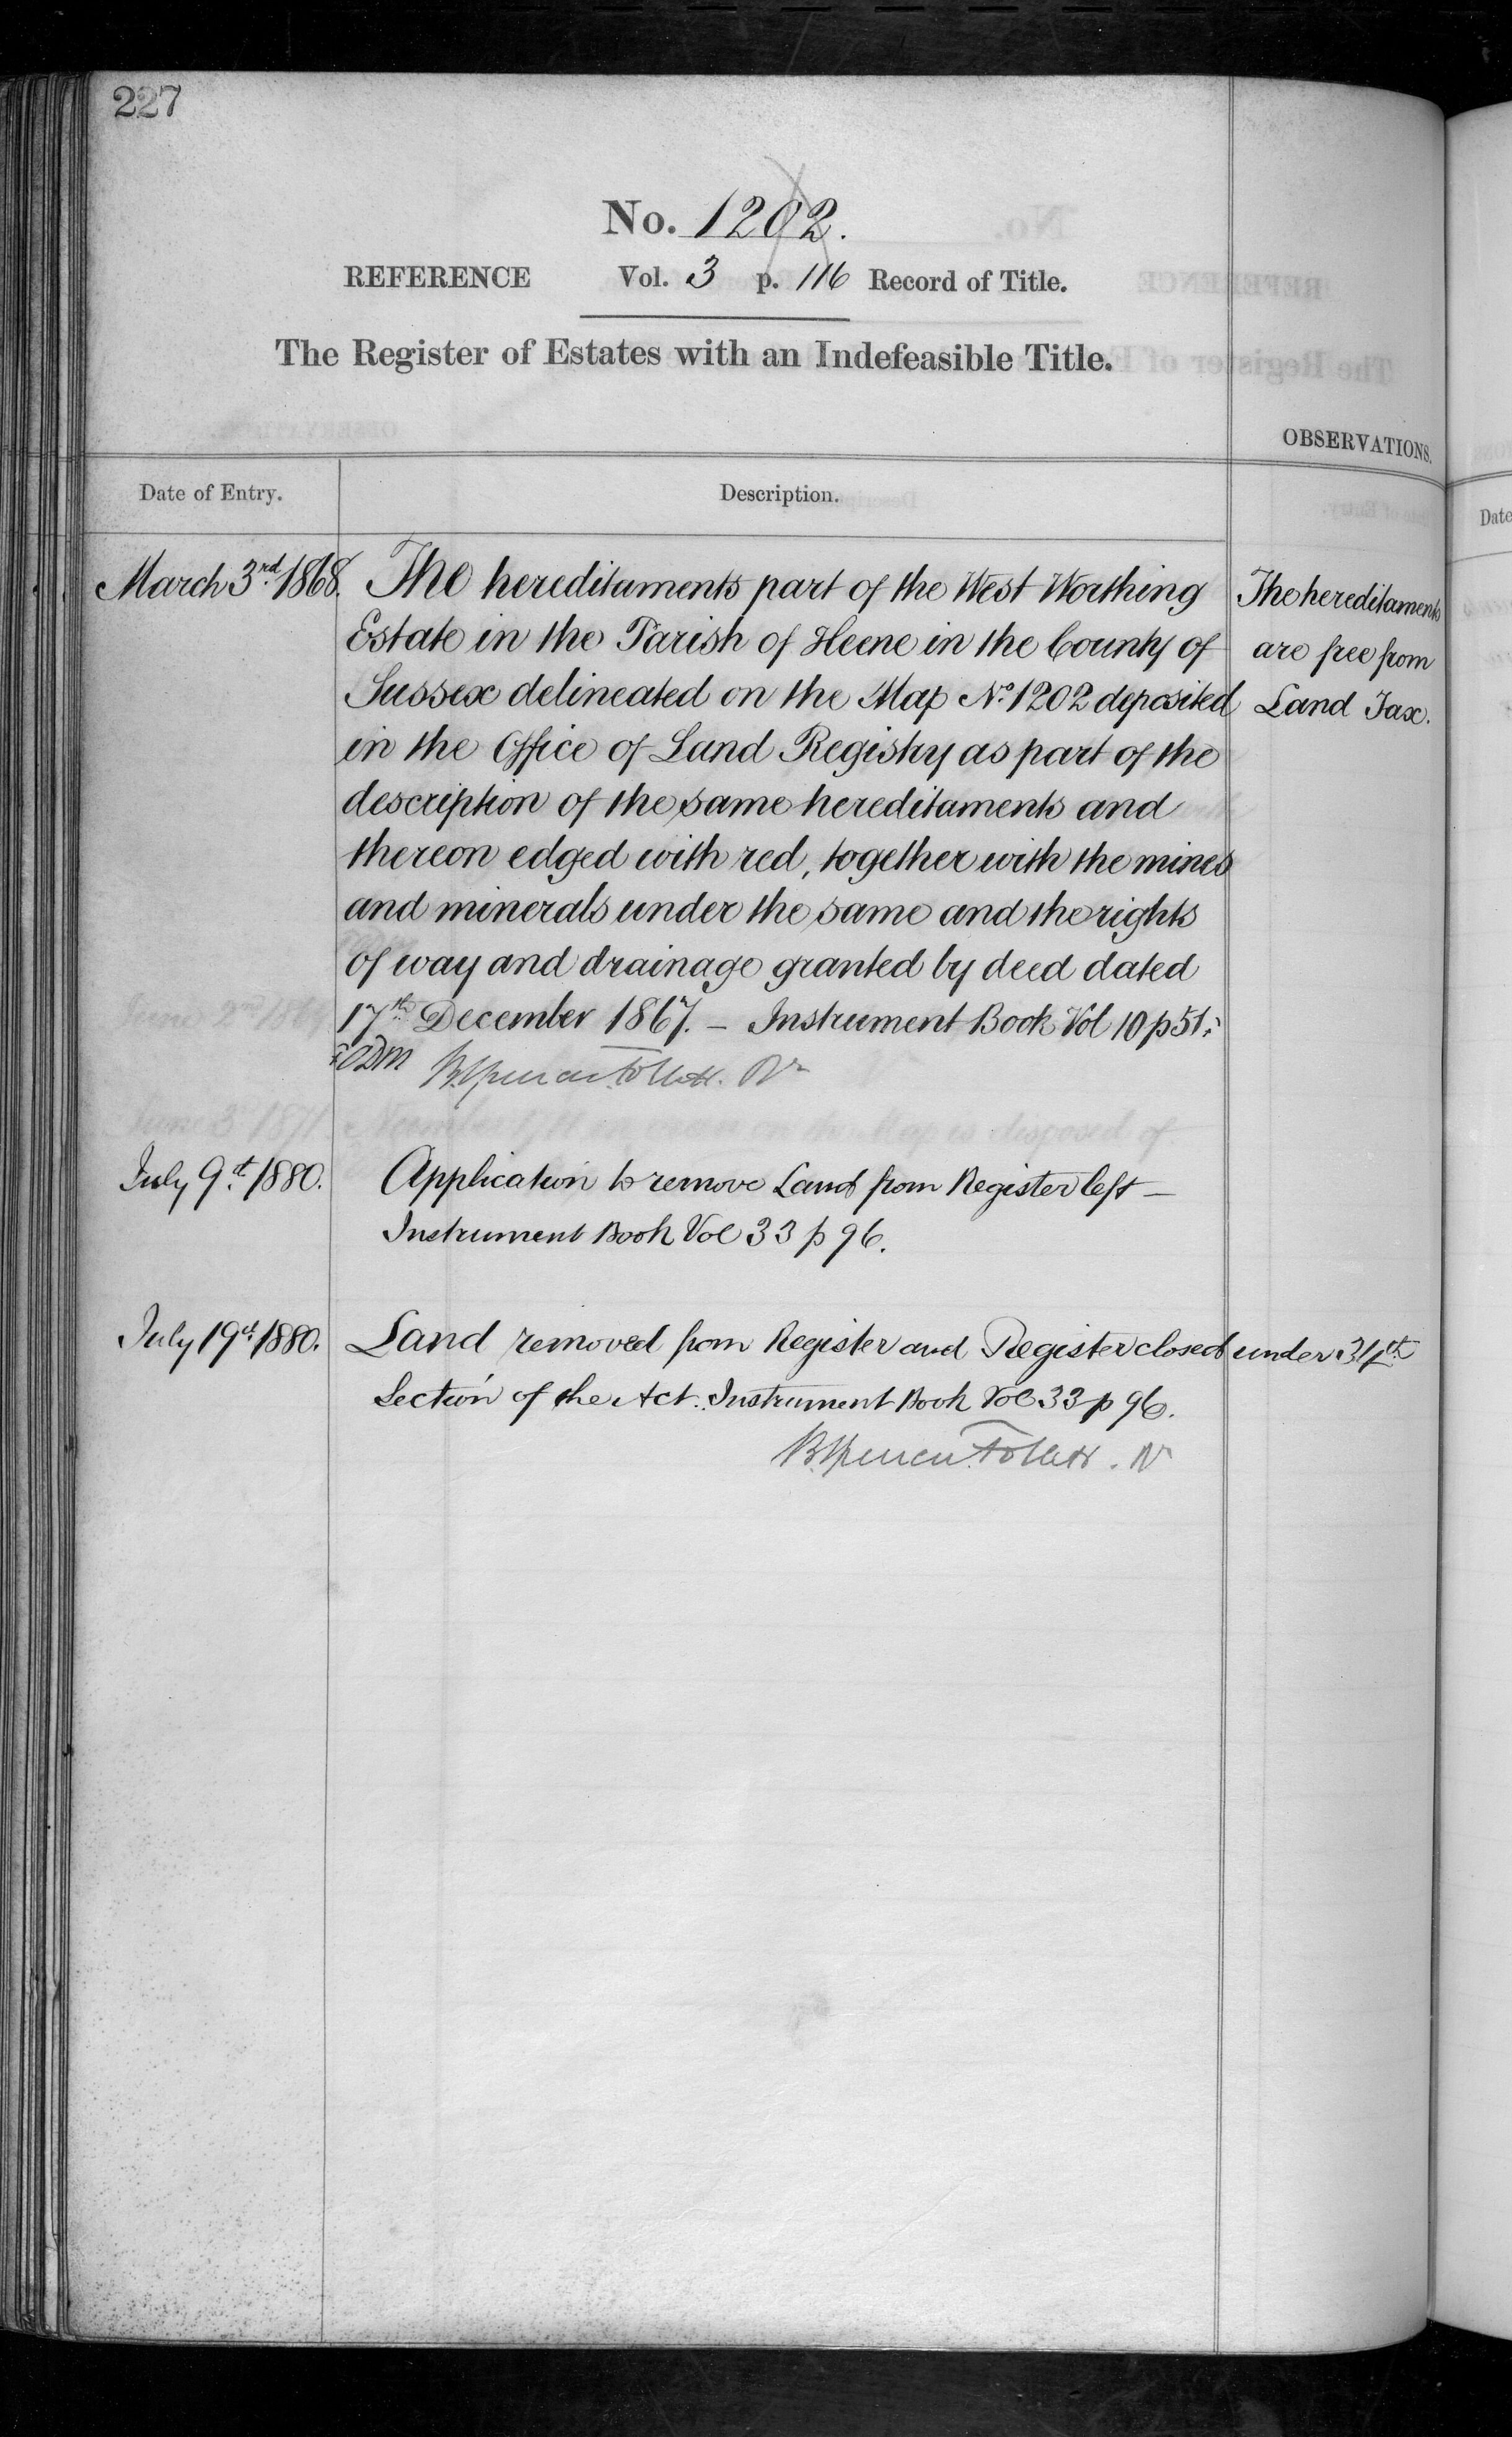 227
No. 1202.
REFERENCE Vol. 3 p. 116 Record of Title.
The Register of Estates with an Indefeasible Title.
OBSERVATIONS.
Date of Entry. Description.
March 3rd 1868. The hereditaments part of the West Worthing
Estate in the Parish of Heene in the County of
Sussex delineated on the Map No. 1202 deposited
in the Office of Land Registry as part of the
description of the same hereditaments and
thereon edged with red, together with the mines
and minerals under the same and the rights
of way and drainage granted by deed dated
17th December 1867. – Instrument Book Vol 10 p 51.
B. Spencer Follett. Rr
The hereditaments
are free from
Land Tax.
July 9th 1880. Application to remove Land from Register left –
Instrument Book Vol 33 p 96.
July 19th 1880. Land removed from Register and Register closed under 34th
Section of the Act. Instrument Book Vol 33 p 96.
B. Spencer Follett. Rr
Date